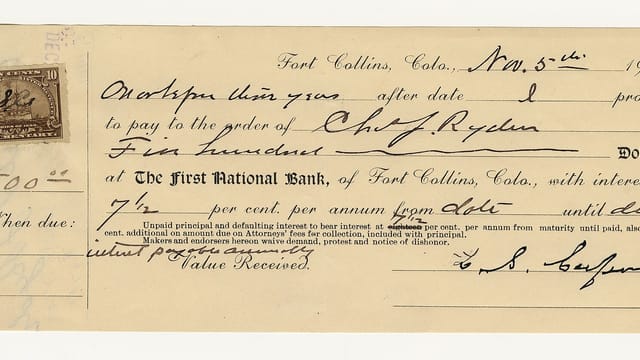 Fort Collins, Colo., Nov. 5th 19
On or before three years after date I pro
to pay to the order of Chas J. Ryden
Five hundred Do
500 00
at The First National Bank, of Fort Collins, Colo., with intere
7 1/2 per cent. per annum from date until
7 1/2
Unpaid principal and defaulting interest to bear interest at eighteen per cent. per annum from maturity until paid, also
cent. additional on amount due on Attorneys' fees for collection, included with principal.
When due:
Makers and endorsers hereon waive demand, protest and notice of dishonor.
interest payable annually
Value Received.
CENTS
10
DEC